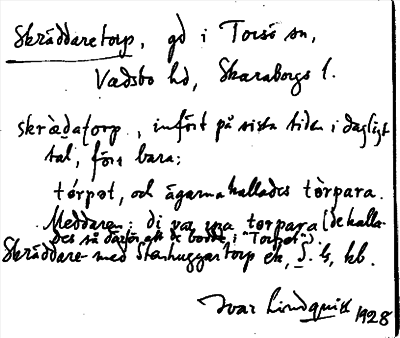 Skräddaretorp, gd i Torsö sn,
Vadsbo hd, Skaraborgs l.
skrädatorp, infört på sista tiden i dagligt
tal, förr bara:
tórpət, och ägarna kallades tòrpara.
Meddelare: di var torpara (de kalla-
des så därför att de bodde i "Torpet").
Skräddare- med Stenhuggartorp ek, J. G, kb.
Ivar Lindquist 1928